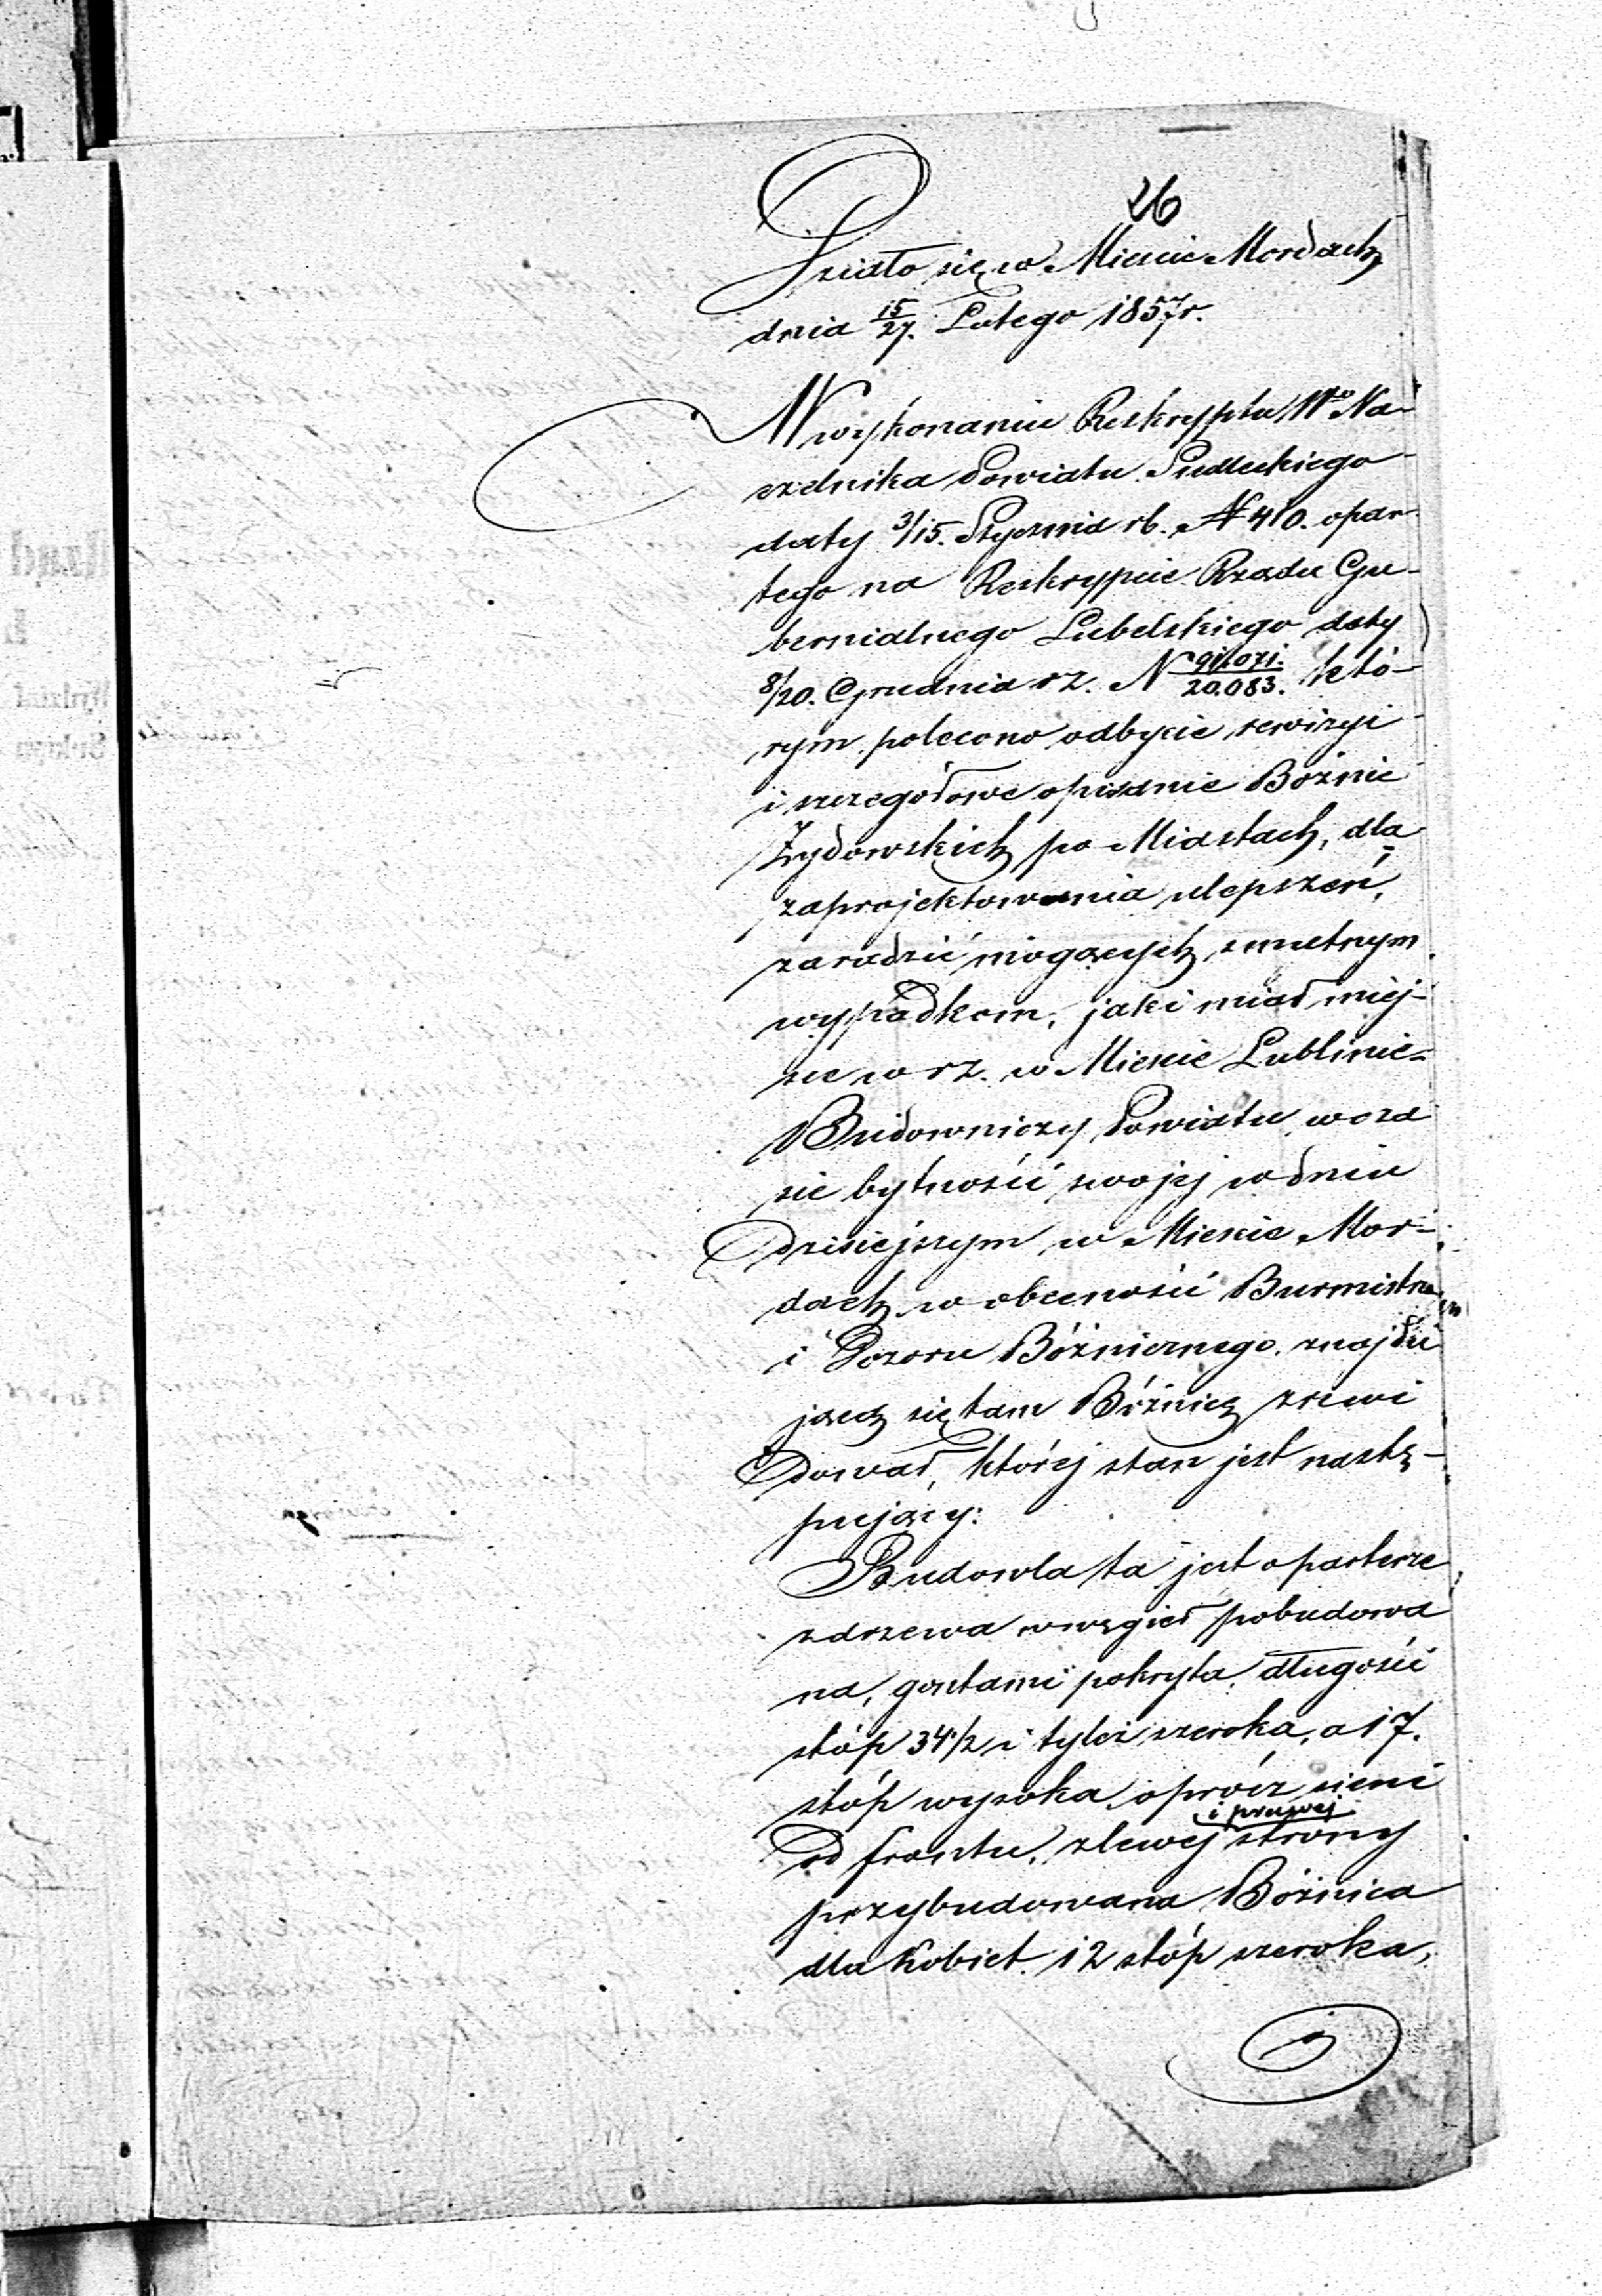 26
Działo się w Mieście Mordach
dnia 15/27. Lutego 1857r.
W wykonaniu Reskryptu Wo Na-
czelnika Powiatu Siedleckiego
daty 3/15. Stycznia rb. N 410. opar-
tego na Reskrypcie Rządu Gu-
bernialnego Lubelskiego daty
8/20. Grudnia rz. N 91.071./20.083. któ-
rym polecono odbycie rewizyi
i szczegółowe opisanie Bożnic
Żydowskich po Miastach, dla
zaprojektowania ulepszeń,
zaradzić mogących smutnym
wypadkom, jaki miał miej-
sce w rz. w Mieście Lublinie-
Budowniczy Powiatu w cza
sie bytności swojej w dniu
dzisiejszym w Mieście Mor-
dach w obecności Burmistrza
i Dozoru Bóżnicznego. znajdu
jącą się tam Bóżnicę zrewi
dował, której stan jest nastę-
pujący:
Budowla ta jest o parterze
z drzewa w węgieł pobudowa
na, gontami pokryta, długości
stóp 34 1/2 i tyleż szeroka, a 17.
stóp wysoka oprócz sieni
i prawej
od frontu, z lewej strony
przybudowana Bożnica
dla Kobiet 12 stóp szeroka,